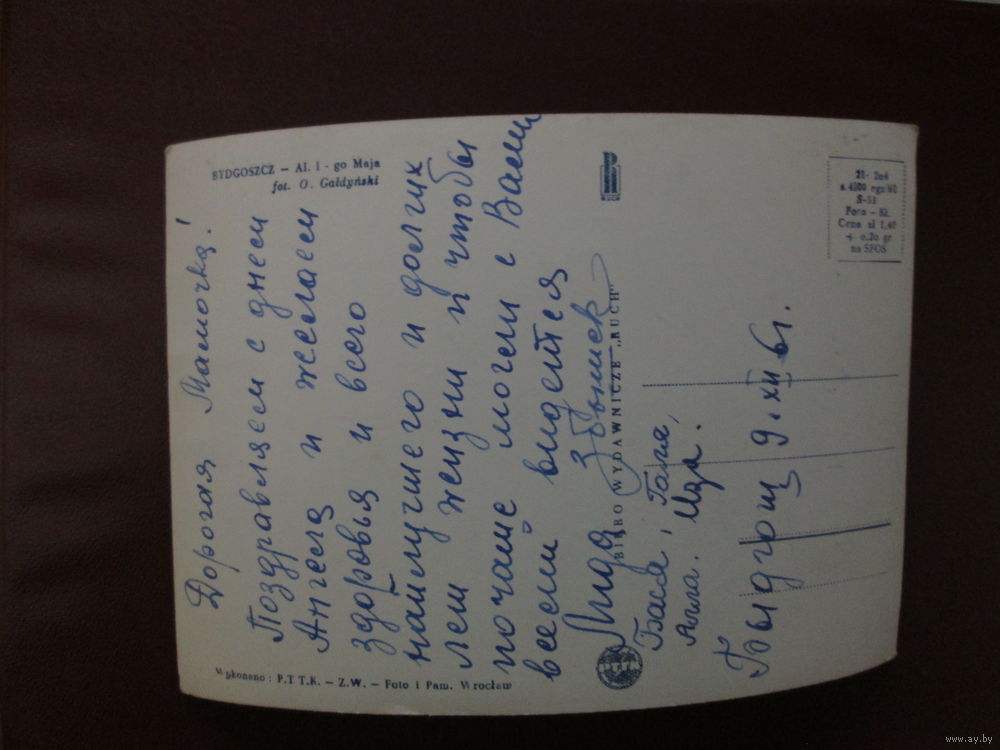 BYDGOSZCZ — Al. 1-go Maja
fot. O. Gałdyński
Дорогая Мамочка!
Поздравляем с днем
Ангела и желаем
здоровья и всего
наилучшего и долгих
лет жизни и чтобы
почаще могли с Вами
всеми видется
Лида Збышек
Бася, Галя,
Алла. Ида.
Быдгощ 9.XII 61.
Wykonano: P.T.T.K. — Z.W. — Foto i Pam. Wrocław
BIURO WYDAWNICZE „RUCH"
RUCH
21- 2o4
S-53
Foto - 82.
Cena zł 1,40
+ o,2o gr
na SFOS
www.ay.by